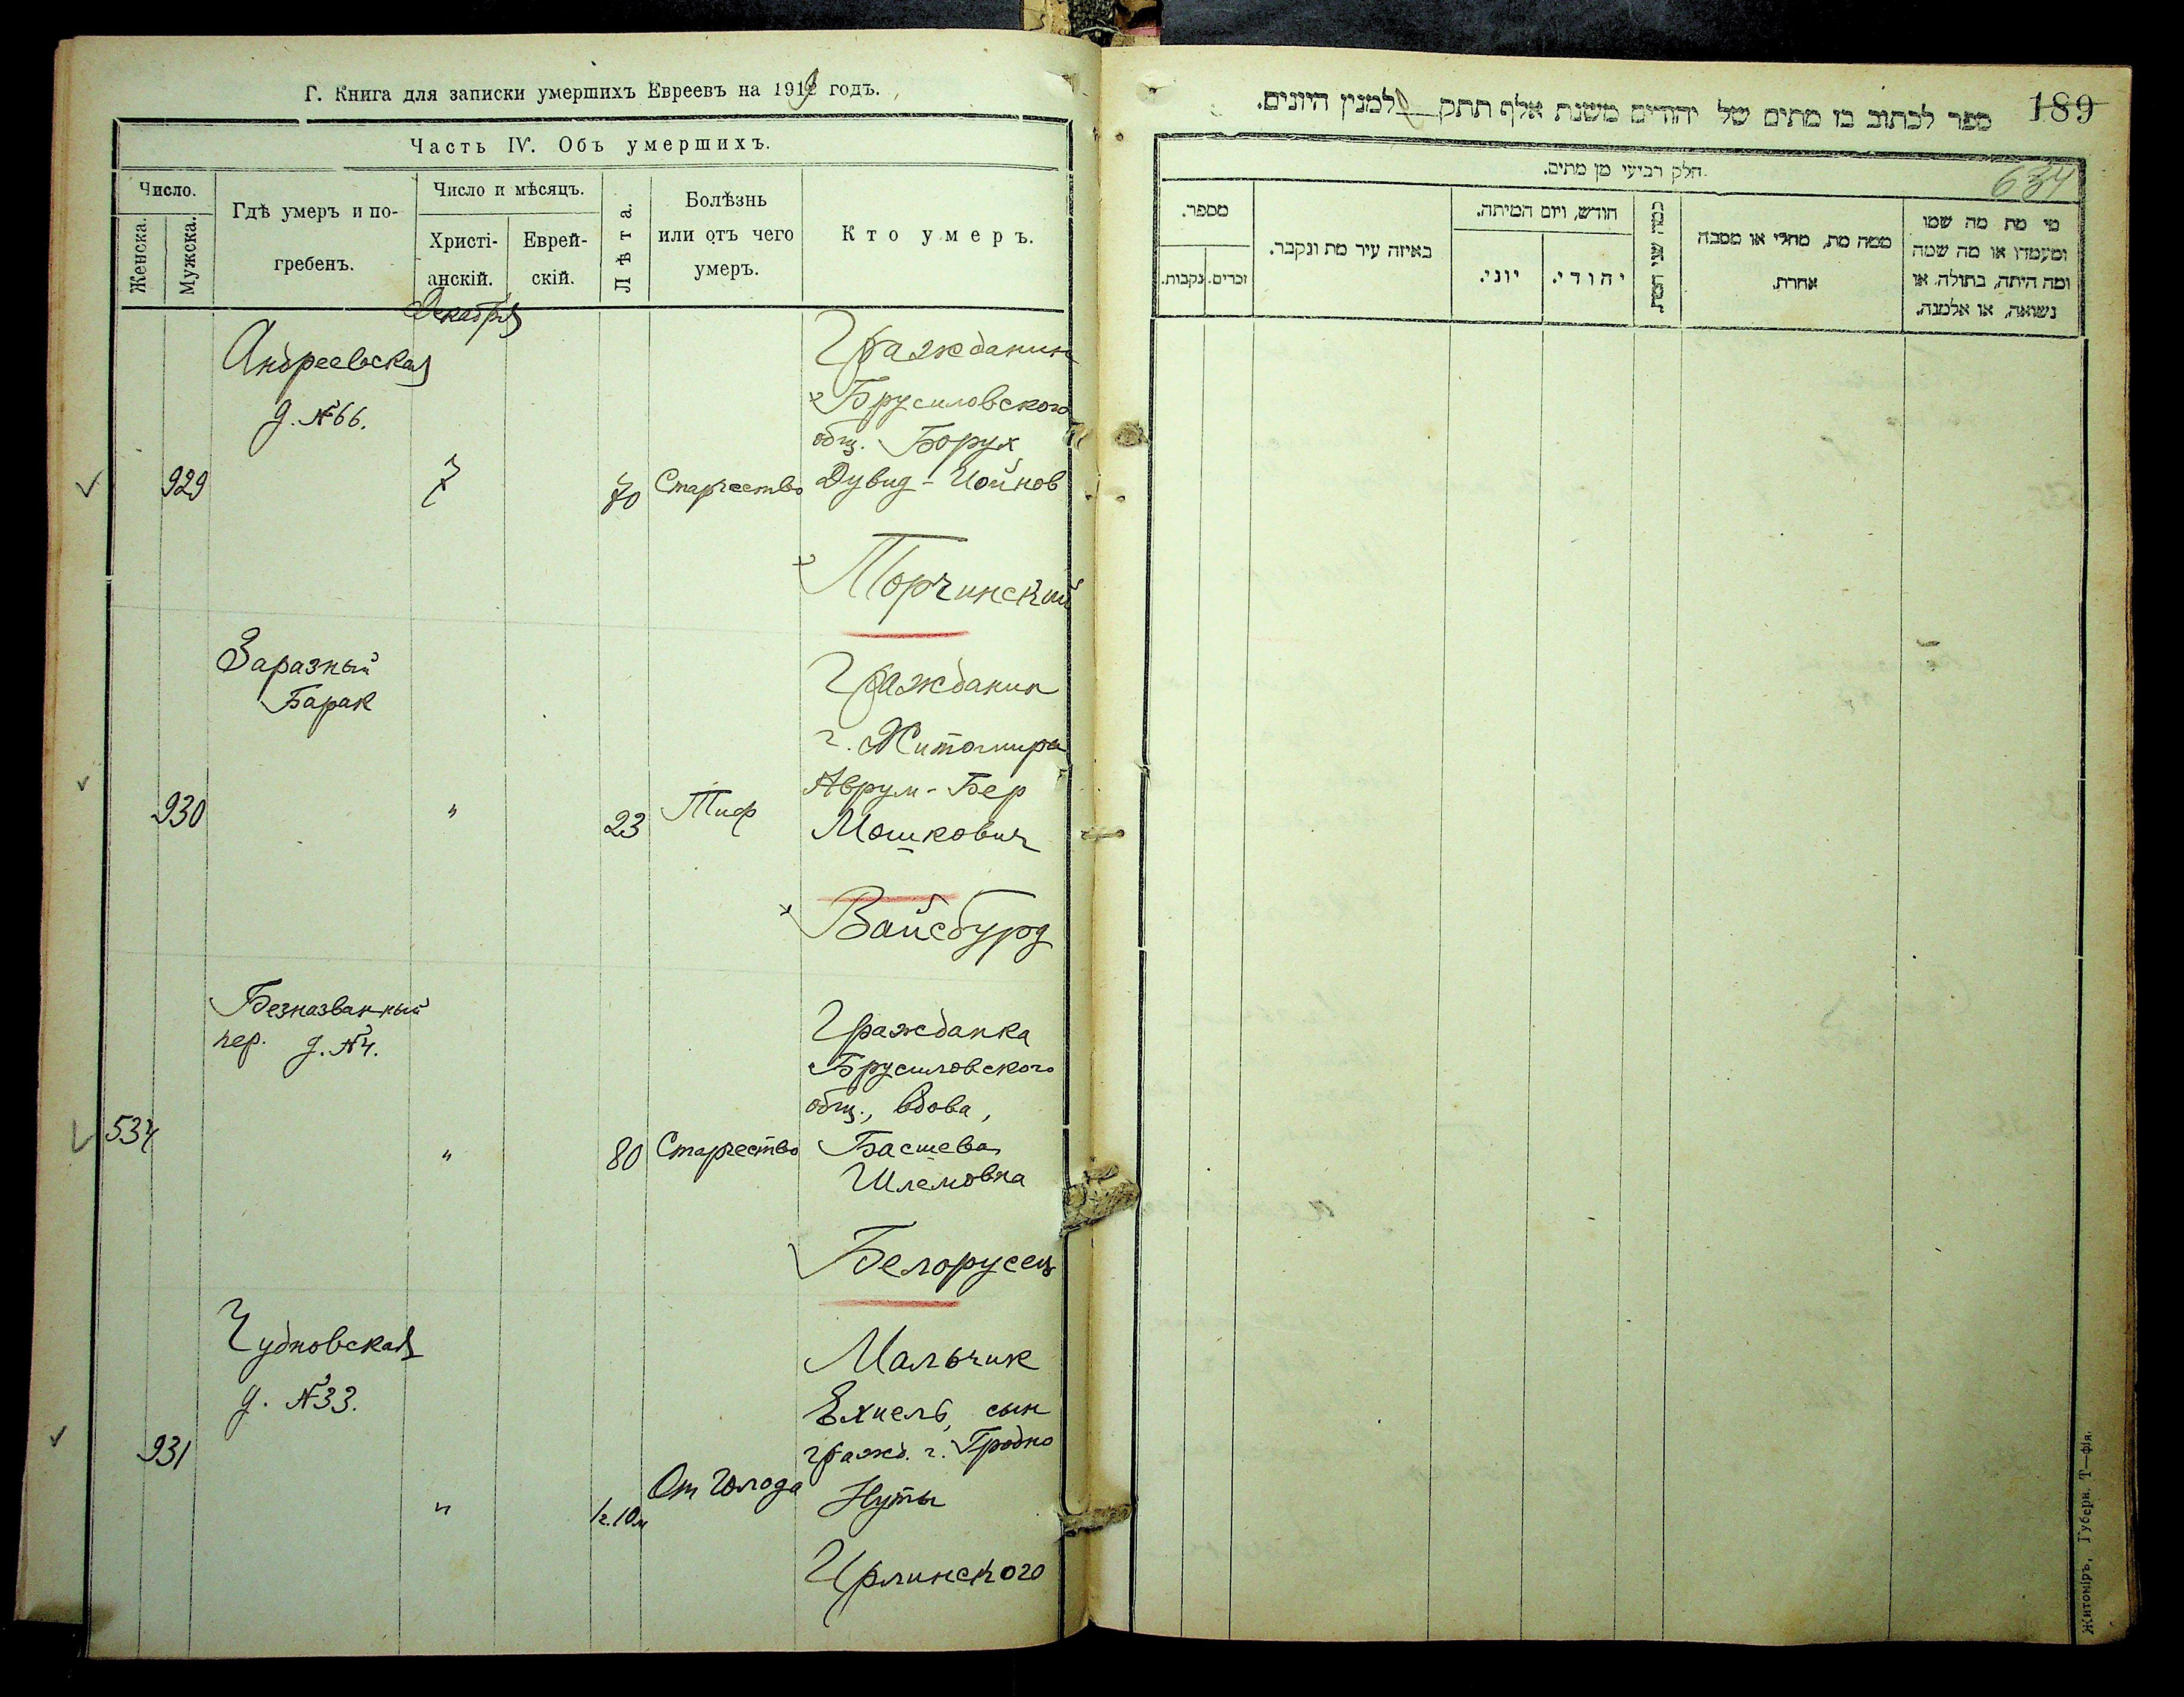 Г. Книга для записки умершихъ Евреевъ на 1919 годъ.
Часть IV. Объ умершихъ.
Число.
Женска.
Мужска.
Гдѣ умеръ и по-
гребенъ.
Число и мѣсяцъ.
Христі-
анскій.
Еврей-
скій.
Лѣта.
Болѣзнь
или отъ чего
умеръ.
Кто умеръ.
Декабря
Андреевская
д. №66.
929
7
70
Старчество
Гражданин
Брусиловского
общ. Борух
Дувид-Иойнов
Торчинский
Заразный
Барак
930
"
23
Тиф
Гражданин
г. Житомира
Аврум-Бер
Мошкович
Вайсбурд
Безназванный
пер. д. №4.
534
"
80
Старчество
Гражданка
Брусиловского
общ., вдова,
Басшева
Шлемовна
Белорусец
Чудновская
д. №33.
931
"
1г.10м
От голода
Мальчик
Ехиель, сын
гражд. г. Гродно
Нуты
Ирлинского
189
ספר לכתוב בו מתים של יהודים משנת אלף תתק למנין היונים.
634
חלק רביעי מן מתים.
מספר.
זכרים.
נקבות.
באיזה עיר מת ונקבר.
חודש, ויום המיתה.
יוני.
יהודי.
כמה שני המת
ממה מת, מחלי או מסבה
אחרת.
מי מת מה שמו
ומעמדו או מה שמה
ומה היתה, בתולה, או
נשואה, או אלמנה.
Житоміръ, Губерн. Т—фія.